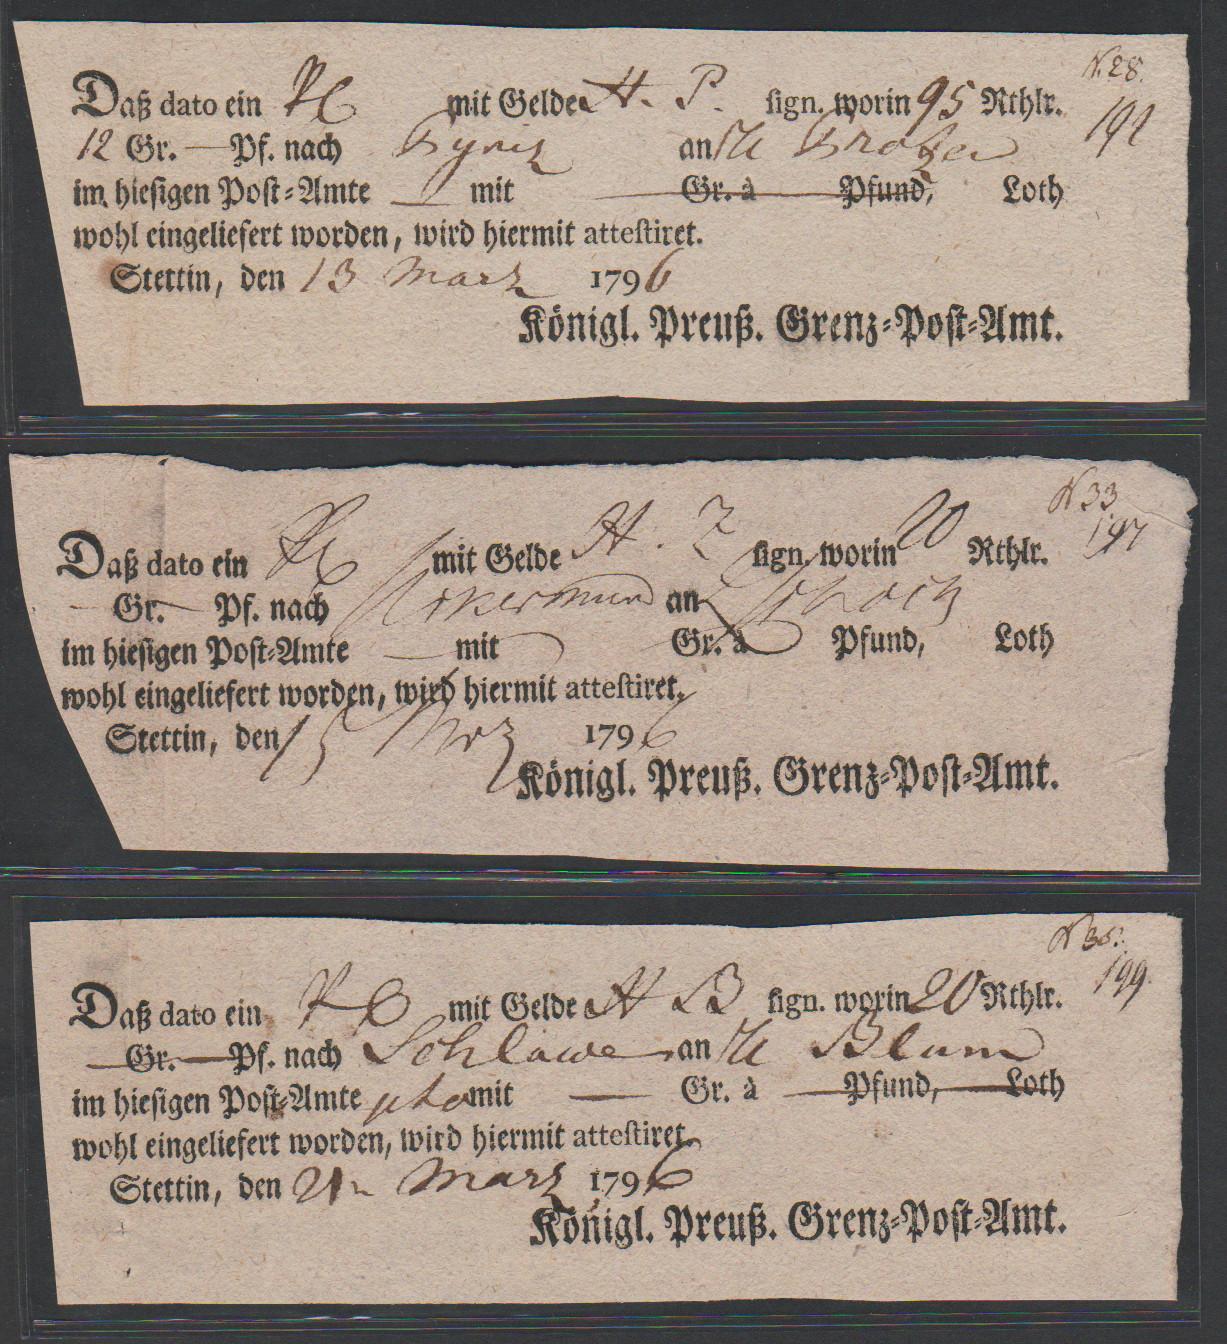 N. 28.
Daß dato ein P C mit Gelde H. P. sign. worin 95 Rthlr.
12 Gr. — Pf. nach Pyritz an
im hiesigen Post-Amte — mit — Gr. à — Pfund, Loth
wohl eingeliefert worden, wird hiermit attestiret.
Stettin, den 13 Marz 1796
Königl. Preuß. Grenz-Post-Amt.
N 33
197
Daß dato ein P C mit Gelde H. Z sign. worin 20 Rthlr.
— Gr. — Pf. nach Ukermund an
im hiesigen Post-Amte — mit Gr. à Pfund, Loth
wohl eingeliefert worden, wird hiermit attestiret.
Stettin, den 15 Mrz 1796
Königl. Preuß. Grenz-Post-Amt.
199.
Daß dato ein P C mit Gelde H B sign. worin 20 Rthlr.
— Gr. — Pf. nach Schlawe an Blum
im hiesigen Post-Amte mit — Gr. à — Pfund, — Loth
wohl eingeliefert worden, wird hiermit attestiret.
Stettin, den 21 Marz 1796
Königl. Preuß. Grenz-Post-Amt.